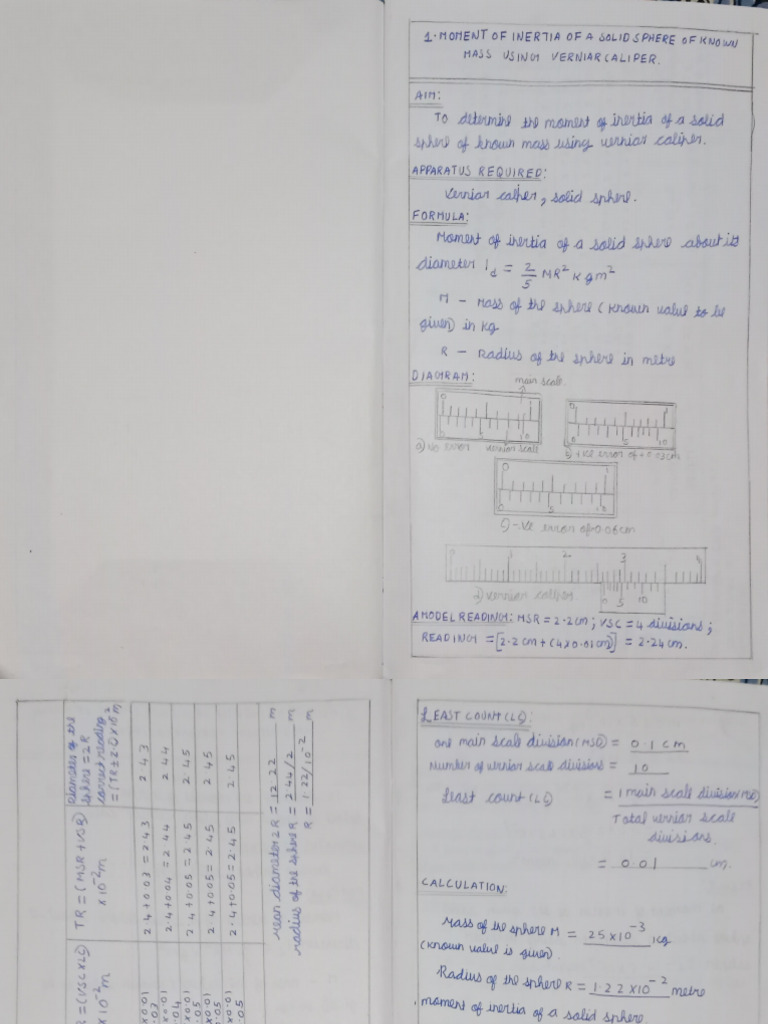 1. MOMENT OF INERTIA OF A SOLID SPHERE OF KNOWN
MASS USING VERNIAR CALIPER.
AIM:
To determine the moment of inertia of a solid
sphere of known mass using verniar caliper.
APPARATUS REQUIRED:
Verniar caliper, solid sphere.
FORMULA:
Moment of inertia of a solid sphere about its
diameter I_d = 2/5 MR² kgm²
M - Mass of the sphere (known value to be
given) in kg
R - Radius of the sphere in metre
DIAGRAM:
main scale.
0 1
0 5 10
a) No error vernian scale
0 1
0 5 10
b) +ve error of +0.03cm
0 1
0 5 10
c) -ve error of
0 1 2 3 4
0 5 10
2) Vernian caliper.
A MODEL READING: MSR = 2.2cm; VSC = 4 divisions;
READING = [2.2cm + (4x0.01cm)] = 2.24cm.
LEAST COUNT (LC):
One main scale division (MSD) = 0.1 cm
Number of vernian scale divisions = 10
Least count (LC) = 1 main scale division
Total vernian scale
divisions.
= 0.01 cm.
CALCULATION:
Mass of the sphere M = 25x10⁻³ kg
(known value is given).
Radius of the sphere R = 1.22x10⁻² metre
moment of inertia of a solid sphere
Diameter of the
sphere = 2R
correct reading
2.43
2.44
2.45
2.45
2.45
TR = (MSR + VSR)
x10⁻²m
2.4+0.03 = 2.43
2.4+0.04 = 2.44
2.4+0.05 = 2.45
2.4+0.05 = 2.45
2.4+0.05 = 2.45
= (VSC x LC)
x10⁻²m
Mean diameter 2R = 12.22 m
radius of the sphere R = 2.44/2 m
R = 1.22/10⁻² m